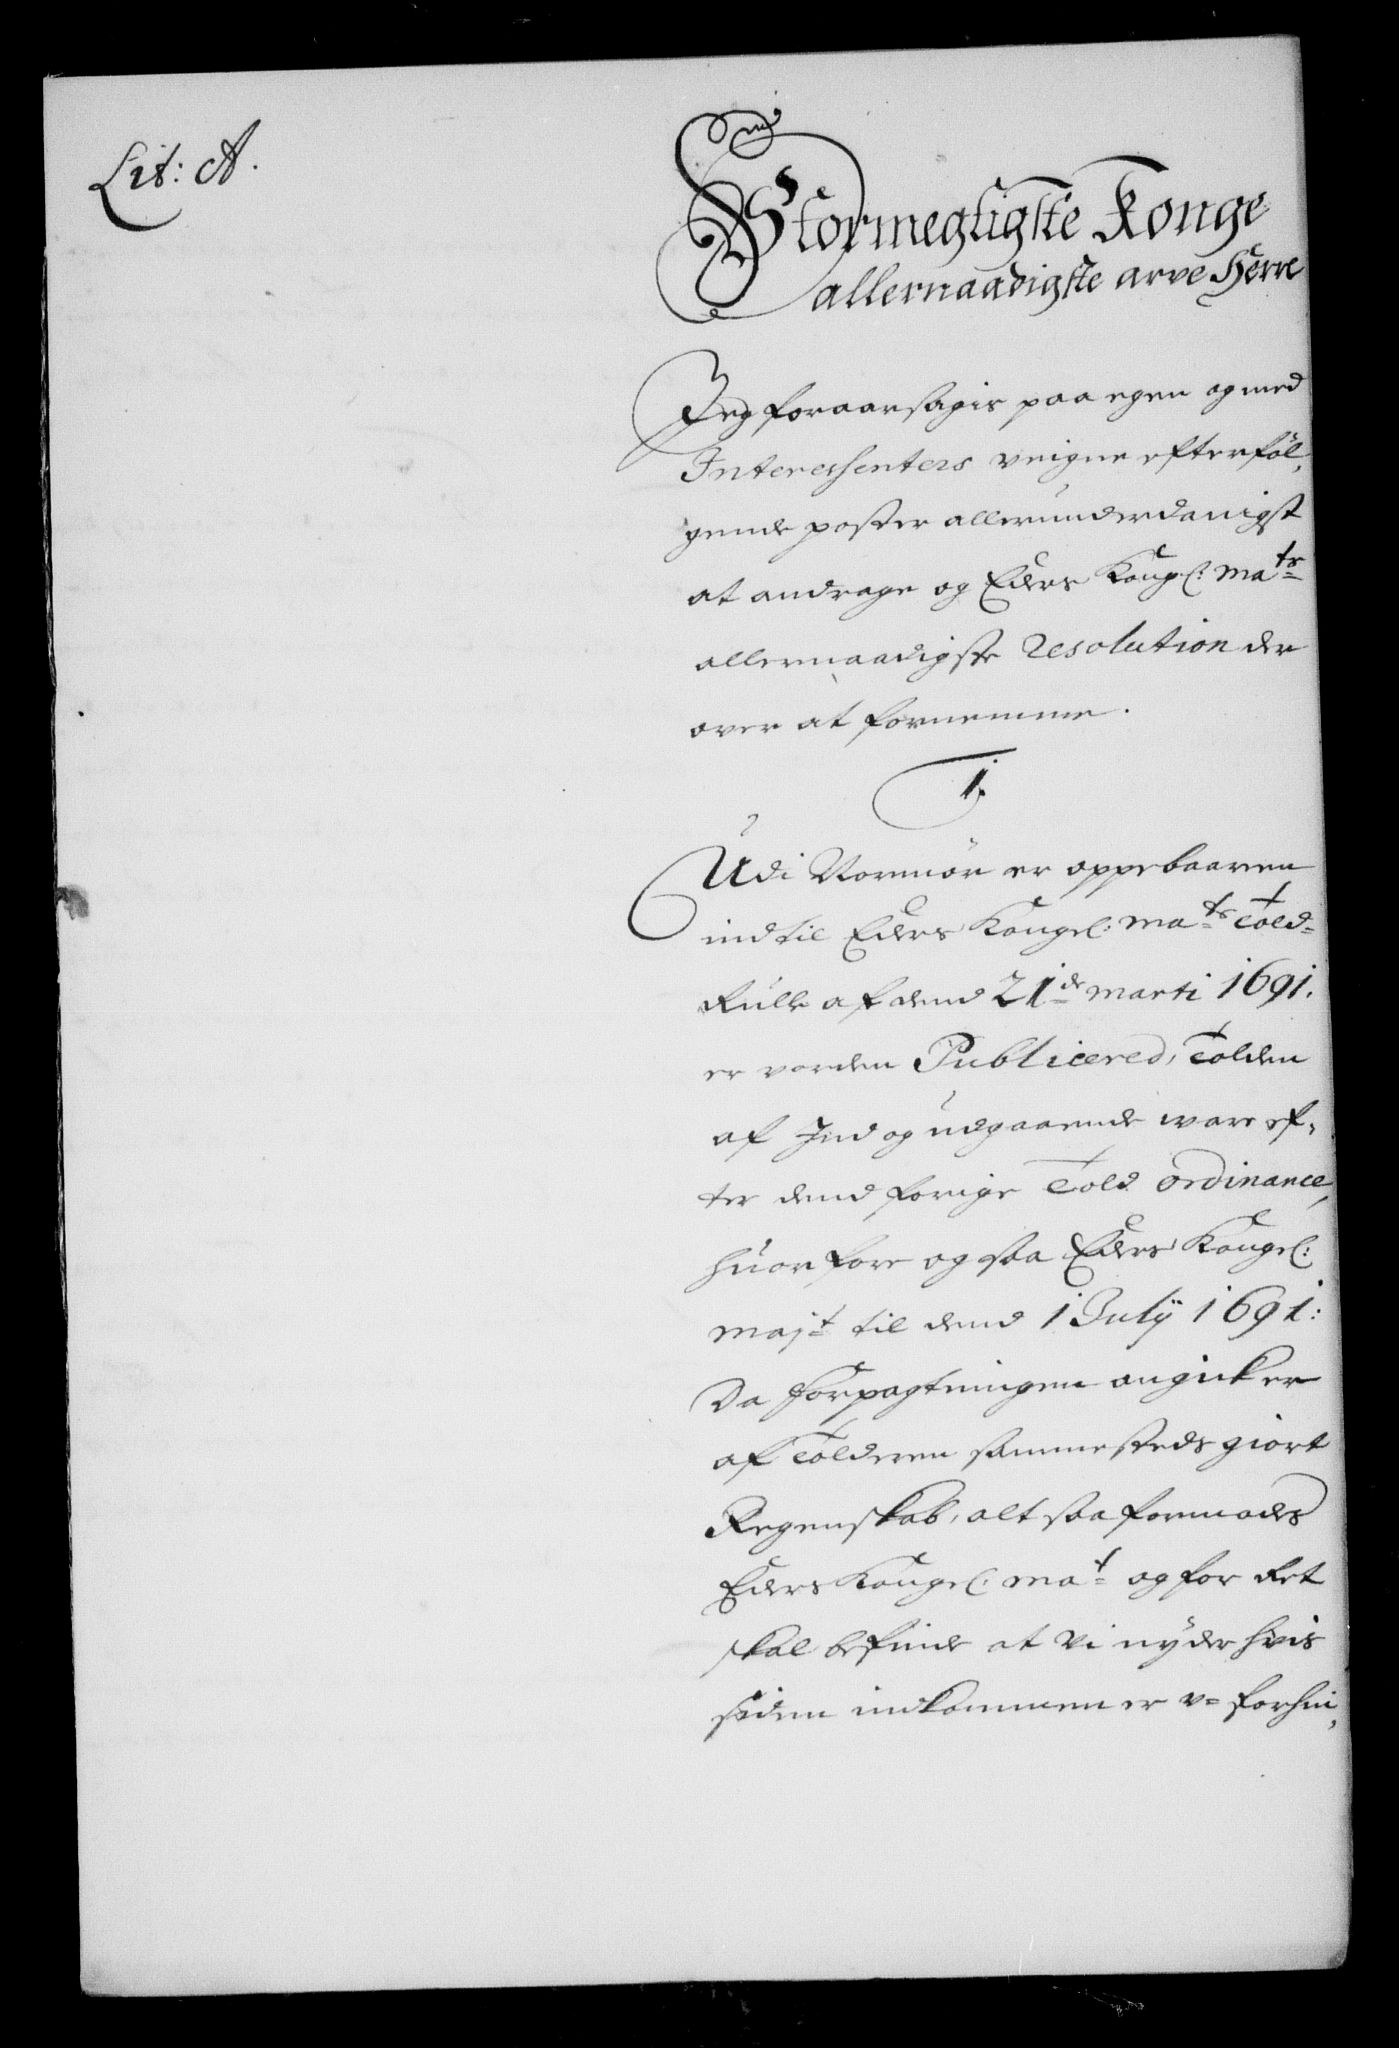 Lit: A.
Stormegtigste Konge
allernaadigste arve Herre
Jeg foraarsagis paa egen og med
Interessenters veigne efterföl,
gende poster allerunderdanigst
at andrage og Eders Kongl: Maᵗˢ
allernaadigste Resolution der
over at fornemme.
1.
Udi Normör er oppebaaren
indtil Eders Kongel: Maᵗˢ Told-
Rulle af dend 21de marti 1691.
er vorden Publicered, Tolden
af Ind og udgaaende ware ef,
ter dend forige Told ordinance,
huorfore og saa Eders Kongel:
majᵗ til dend 1 Julÿ 1691:
Da Forpagtningen angick er
af Tolderen sammesteds giort
Regenskab, alt saa formodes
Eders Kongel: maᵗ og for Ret
skal befinde at Vi nyder hvis
siden indkommen er v= forhin,